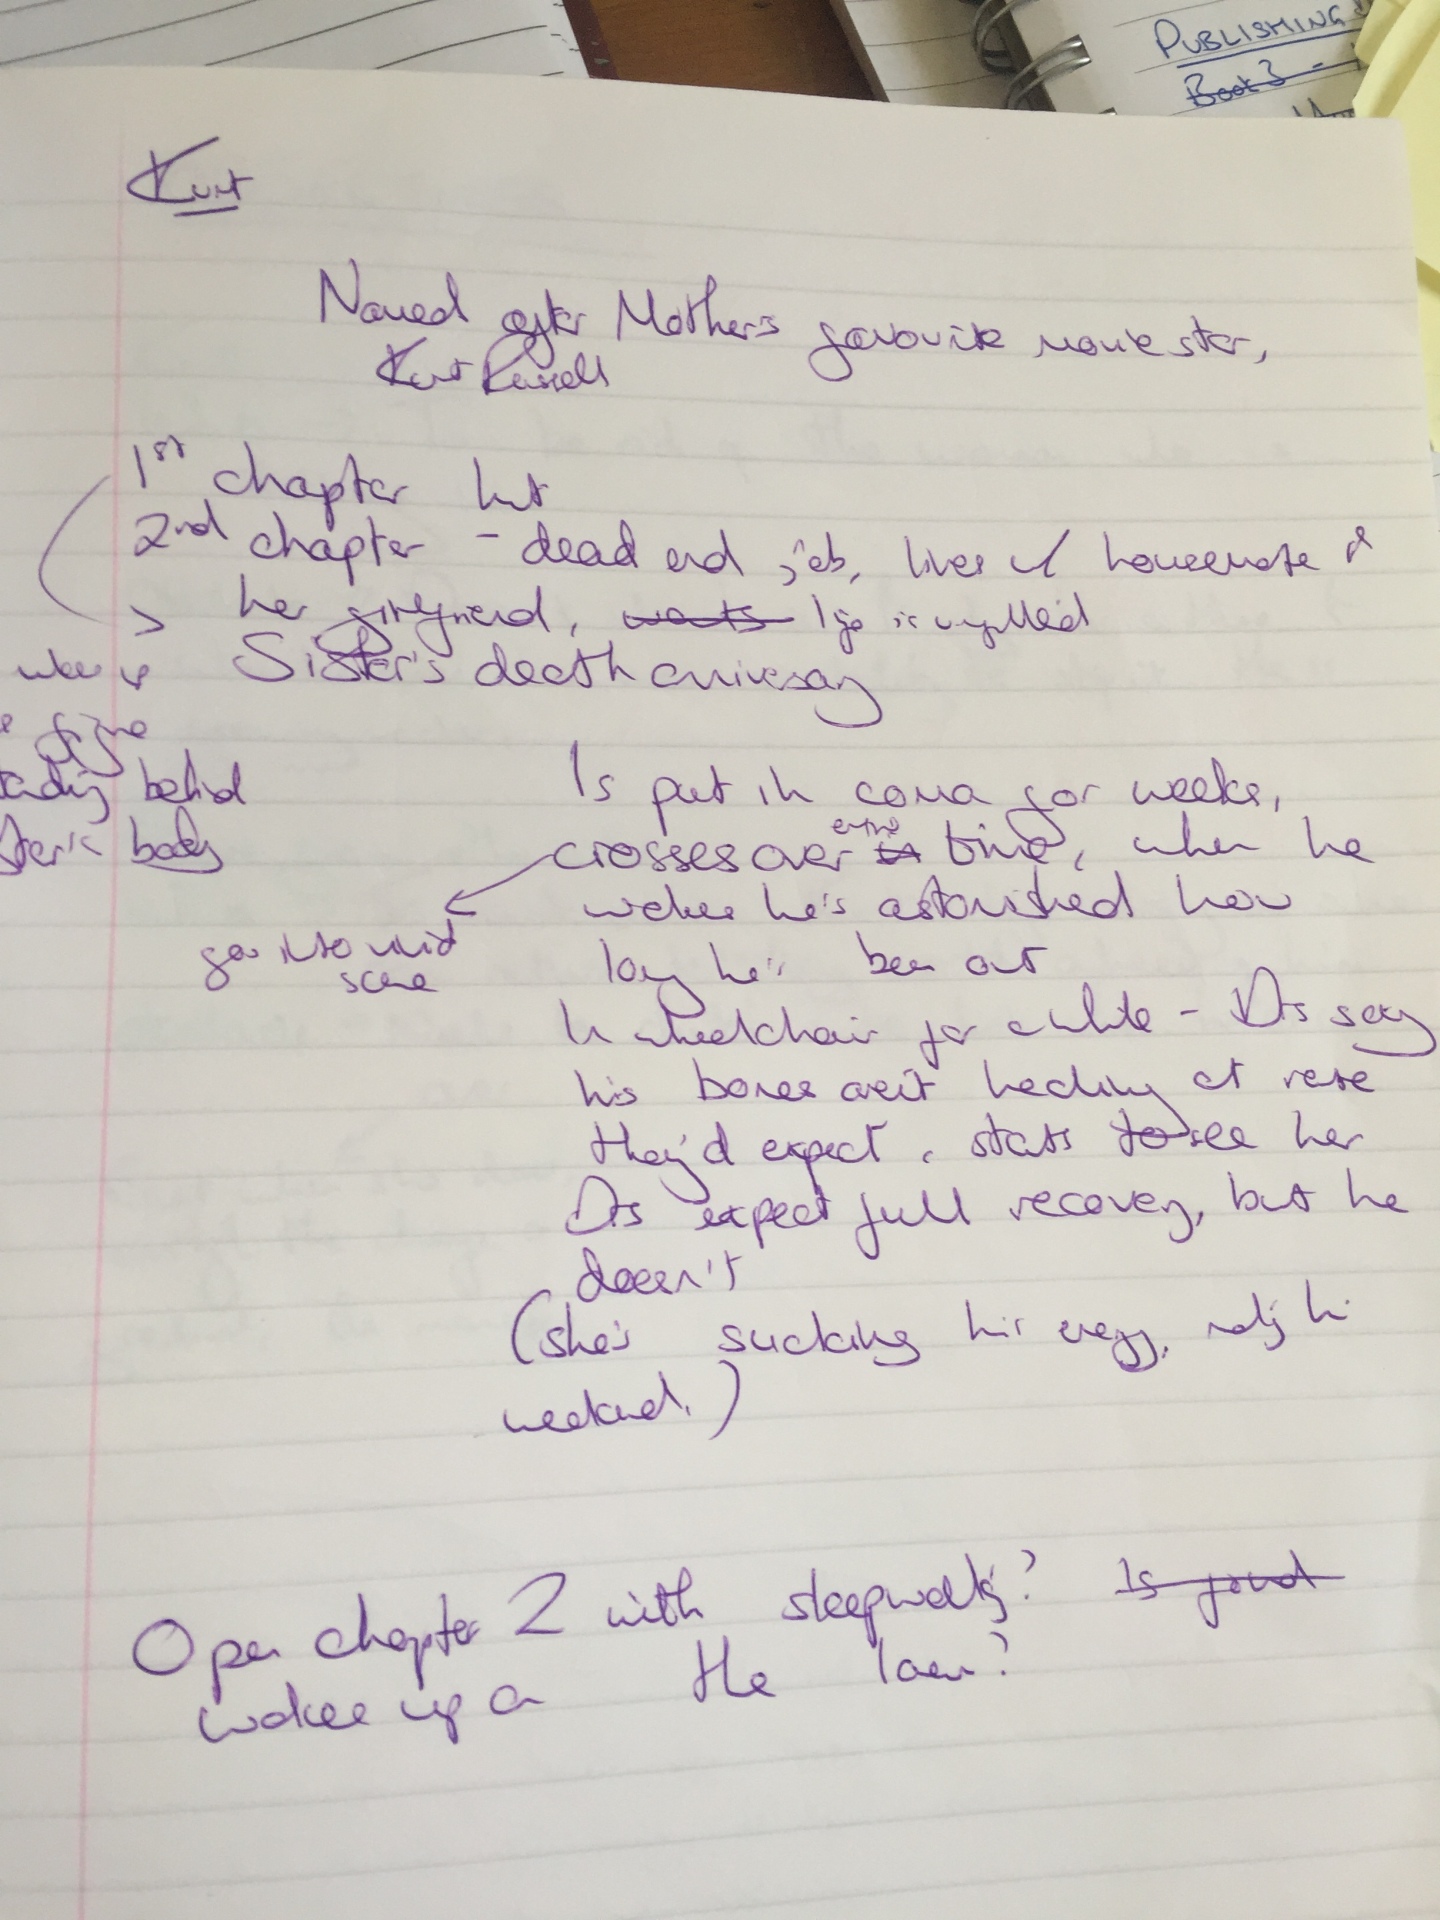 PUBLISHING
Book 3 -
Kurt
Named after Mother's favourite movie star,
Kurt Russell
1st chapter hit
2nd chapter - dead end job, lives w/ housemate &
her girlfriend, wants life is unfulfilled
Sister's death anniversary
behind
body
Is put in coma for weeks,
crosses over entire time, when he
wakes he's astonished how
long he's been out
goes into void
scene
In wheelchair for a while - Drs say
his bones aren't healing at rate
they'd expect, starts to see her
Drs expect full recovery, but he
doesn't
(she's sucking his energy, making him
weakened.)
Open chapter 2 with sleepwalking? Is found
wakes up on the lawn?